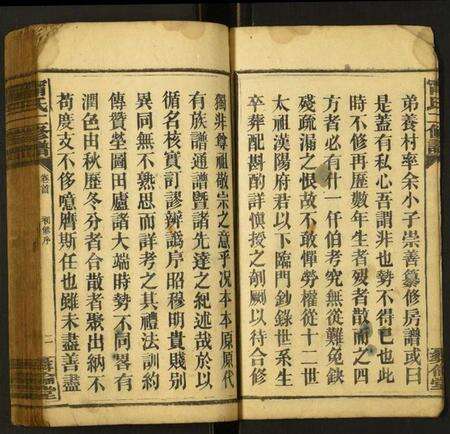 弟養村率余小子崇善纂修房譜或曰
是蓋有私心吾謂非也勢不得已也此
時不修再歷數年生者殁者散漸之四
方者必有什一仟伯考究無從難免缺
殘疏漏之恨故不敢憚勞權從十二世
太祖漢陽府君以下臨門鈔錄世系生
卒葬配斟酌詳慎授之剞劂以待合修
獨非尊祖敬宗之意乎况本本原原代
有族譜通譜暨諸先達之紀述哉於以
循名核實訂謬辨譌序昭穆明貴賤别
異同無不熟思而詳考之其禮法訓約
傳贊塋圖田廬諸大端時勢不同畧有
潤色由秋歷冬分者合散者聚出納不
苟度支不侈噫膺斯任也雖未盡善盡
甯氏二修譜
卷首
修序
二
倫堂